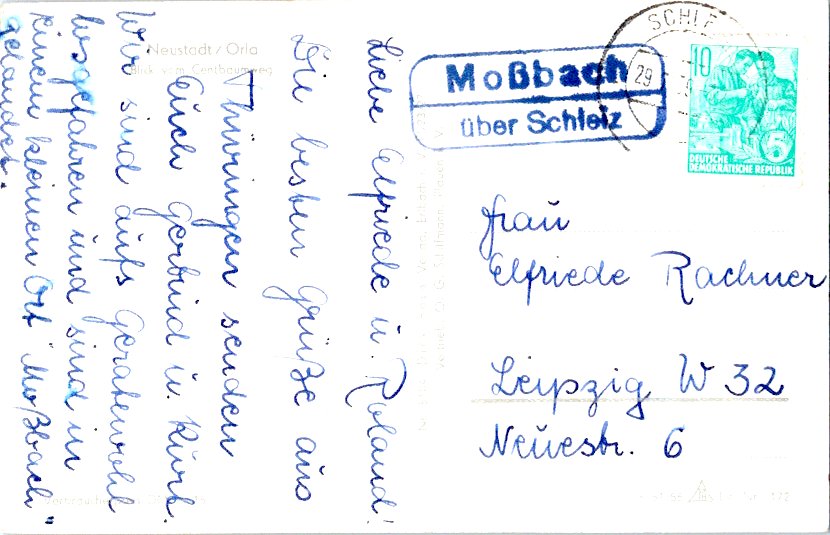 Neustadt / Orla
Blick vom Centbaumweg
Liebe Elfriede u. Roland!
Die besten Grüße aus
Thüringen senden
Euch Gerbind u. Kurt.
Wir sind aufs Geratewohl
losgefahren und sind in
einem kleinen Ort "Moßbach"
gelandet.
Moßbach
über Schleiz
SCHLE
29
10
5
DEUTSCHE
DEMOKRATISCHE REPUBLIK
Frau
Elfriede Rachner
Leipzig W 32
Neuestr. 6